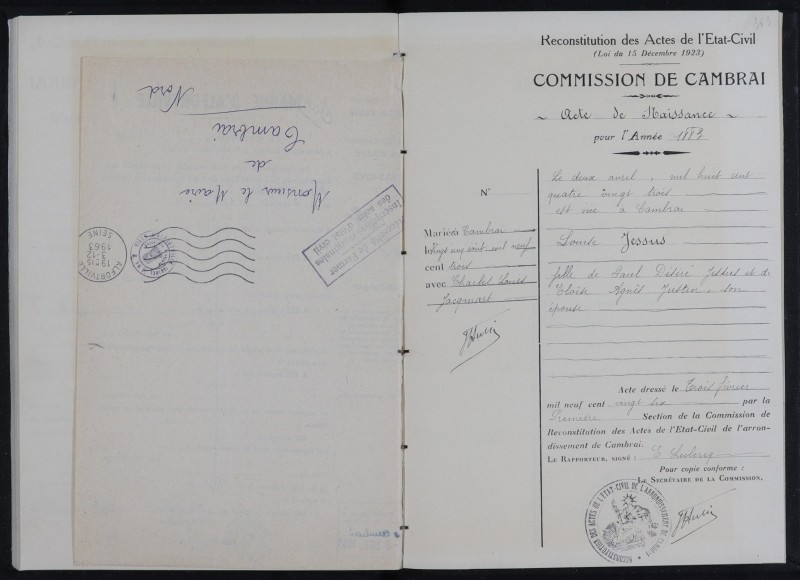 Monsieur le Maire
de
Cambrai
Nord
ALFORTVILLE
19H15
3-12
1963
SEINE
des actes d'état civil
Reconstitution des Actes de l'Etat-Civil
(Loi du 15 Décembre 1923)
COMMISSION DE CAMBRAI
Acte de Naissance
pour l'Année 1883
N°
Le deux avril, mil huit cent
quatre vingt trois
est née à Cambrai
Louise Jessus
fille de Paul Désiré Jessus et de
Eloïse Agnès Justin, son
épouse
Marié à Cambrai
le vingt neuf août mil neuf
cent trois
avec Charles Louis
Jacquart
Acte dressé le Trois février
mil neuf cent vingt six par la
Première Section de la Commission de
Reconstitution des Actes de l'Etat-Civil de l'arron-
dissement de Cambrai.
LE RAPPORTEUR, SIGNÉ :
Pour copie conforme :
LE SECRÉTAIRE DE LA COMMISSION,
RECONSTITUTION DES ACTES DE L'ETAT-CIVIL DE L'ARRONDISSEMENT DE CAMBRAI